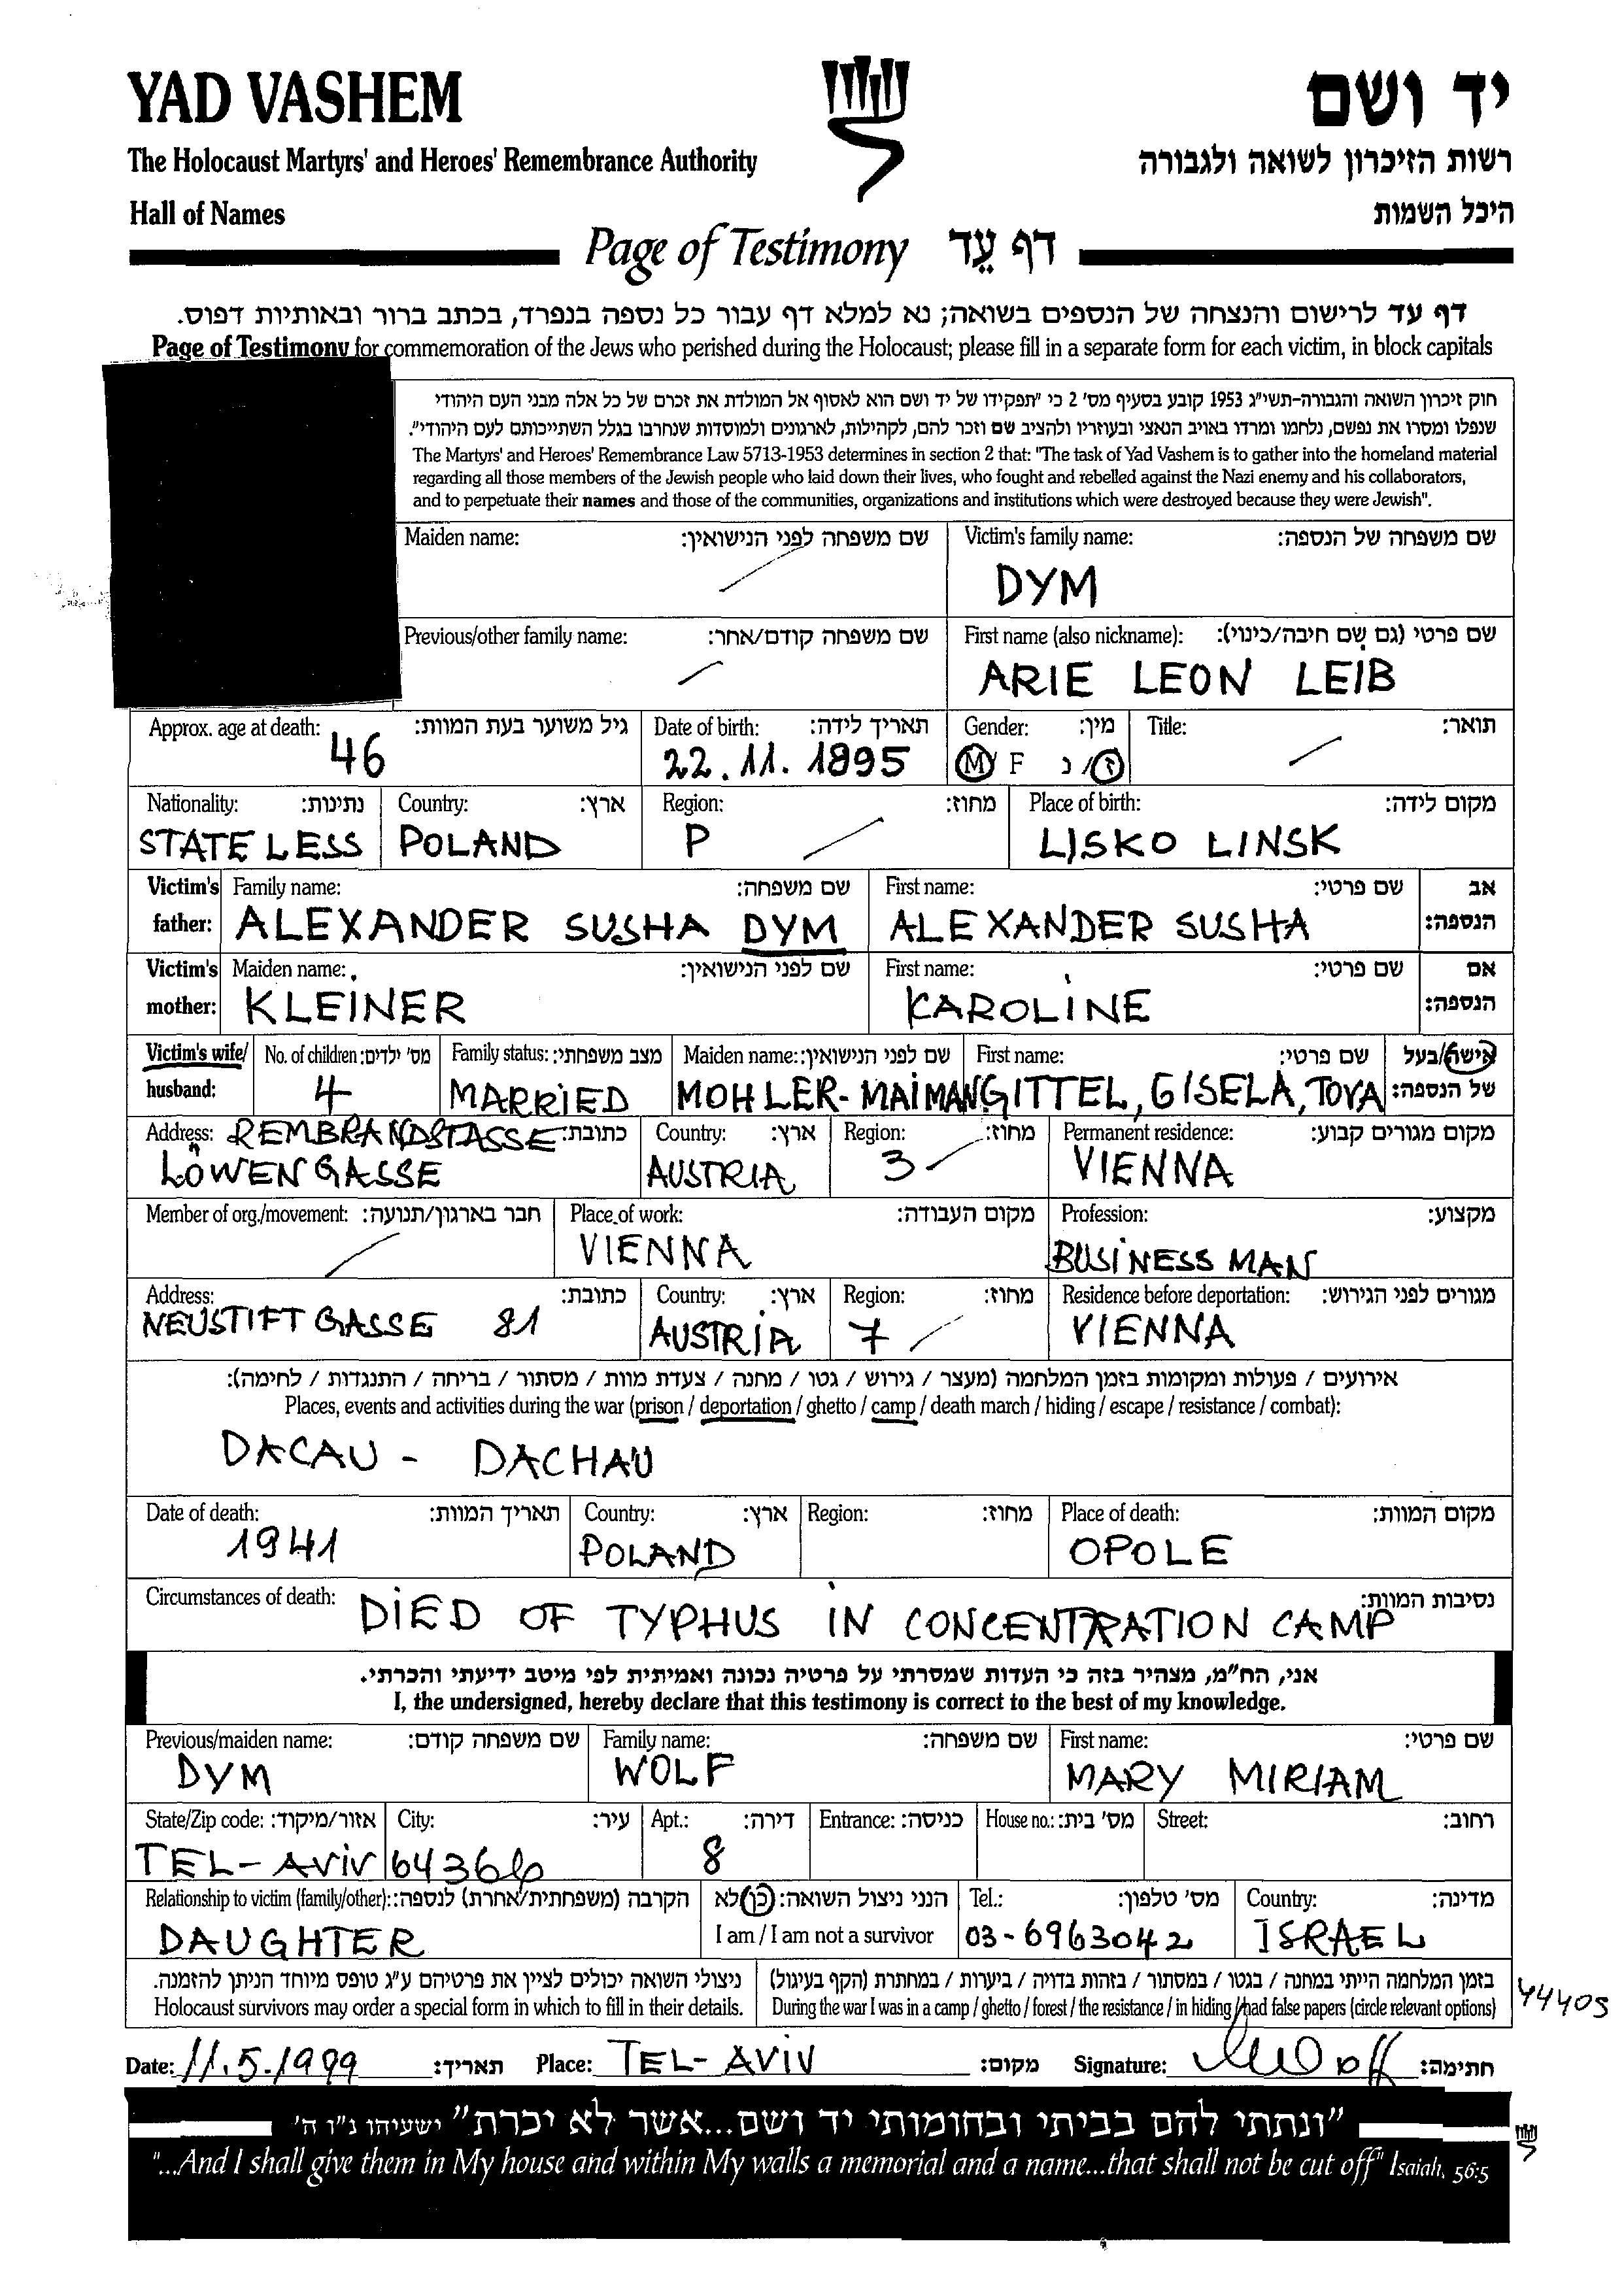 YAD VASHEM
יד ושם
The Holocaust Martyrs' and Heroes' Remembrance Authority
רשות הזיכרון לשואה ולגבורה
Hall of Names
היכל השמות
Page of Testimony דף עֵד
דף עד לרישום והנצחה של הנספים בשואה; נא למלא דף עבור כל נספה בנפרד, בכתב ברור ובאותיות דפוס.
Page of Testimony for commemoration of the Jews who perished during the Holocaust; please fill in a separate form for each victim, in block capitals
חוק זיכרון השואה והגבורה-תשי"ג 1953 קובע בסעיף מס' 2 כי "תפקידו של יד ושם הוא לאסוף אל המולדת את זכרם של כל אלה מבני העם היהודי
שנפלו ומסרו את נפשם, נלחמו ומרדו באויב הנאצי ובעוזריו ולהציב שם וזכר להם, לקהילות, לארגונים ולמוסדות שנחרבו בגלל השתייכותם לעם היהודי".
The Martyrs' and Heroes' Remembrance Law 5713-1953 determines in section 2 that: "The task of Yad Vashem is to gather into the homeland material
regarding all those members of the Jewish people who laid down their lives, who fought and rebelled against the Nazi enemy and his collaborators,
and to perpetuate their names and those of the communities, organizations and institutions which were destroyed because they were Jewish".
Maiden name: שם משפחה לפני הנישואין: Victim's family name: שם משפחה של הנספה:
DYM
Previous/other family name: שם משפחה קודם/אחר: First name (also nickname): שם פרטי (גם שם חיבה/כינוי):
ARIE LEON LEIB
Approx. age at death: גיל משוער בעת המוות: Date of birth: תאריך לידה: Gender: מין: Title: תואר:
46 22.11.1895 M/ F ז/ נ
Nationality: נתינות: Country: ארץ: Region: מחוז: Place of birth: מקום לידה:
STATE LESS POLAND P LISKO LINSK
Victim's father: Family name: שם משפחה: First name: שם פרטי: אב הנספה:
ALEXANDER SUSHA DYM ALEXANDER SUSHA
Victim's mother: Maiden name: שם לפני הנישואין: First name: שם פרטי: אם הנספה:
KLEINER KAROLINE
Victim's wife/ husband: No. of children: מס' ילדים: Family status: מצב משפחתי: Maiden name: שם לפני הנישואין: First name: שם פרטי: אישה/בעל של הנספה:
4 MARRIED MOHLER-MAIMAN GITTEL, GISELA, TOVA
Address: REMBRANDSTASSE כתובת: Country: ארץ: Region: מחוז: Permanent residence: מקום מגורים קבוע:
LÖWENGASSE AUSTRIA 3 VIENNA
Member of org./movement: חבר בארגון/תנועה: Place of work: מקום העבודה: Profession: מקצוע:
VIENNA BUSINESS MAN
Address: כתובת: Country: ארץ: Region: מחוז: Residence before deportation: מגורים לפני הגירוש:
NEUSTIFT GASSE 81 AUSTRIA 7 VIENNA
אירועים / פעולות ומקומות בזמן המלחמה (מעצר / גירוש / גטו / מחנה / צעדת מוות / מסתור / בריחה / התנגדות / לחימה):
Places, events and activities during the war (prison / deportation / ghetto / camp / death march / hiding / escape / resistance / combat):
DACAU - DACHAU
Date of death: תאריך המוות: Country: ארץ: Region: מחוז: Place of death: מקום המוות:
1941 POLAND OPOLE
Circumstances of death: נסיבות המוות:
DIED OF TYPHUS IN CONCENTRATION CAMP
אני, הח"מ, מצהיר בזה כי העדות שמסרתי על פרטיה נכונה ואמיתית לפי מיטב ידיעתי והכרתי.
I, the undersigned, hereby declare that this testimony is correct to the best of my knowledge.
Previous/maiden name: שם משפחה קודם: Family name: שם משפחה: First name: שם פרטי:
DYM WOLF MARY MIRIAM
State/Zip code: אזור/מיקוד: City: עיר: Apt.: דירה: Entrance: כניסה: House no.: מס' בית: Street: רחוב:
TEL-AVIV 64366 8
Relationship to victim (family/other): הקרבה (משפחתית/אחרת) לנספה: הנני ניצול השואה: כן/לא Tel.: מס' טלפון: Country: מדינה:
DAUGHTER I am / I am not a survivor 03-6963042 ISRAEL
ניצולי השואה יכולים לציין את פרטיהם ע"ג טופס מיוחד הניתן להזמנה. בזמן המלחמה הייתי במחנה / בגטו / במסתור / בזהות בדויה / ביערות / במחתרת (הקף בעיגול)
Holocaust survivors may order a special form in which to fill in their details. During the war I was in a camp / ghetto / forest / the resistance / in hiding / had false papers (circle relevant options)
44405
Date: 11.5.1999 תאריך: Place: TEL-AVIV מקום: Signature: חתימה:
"ונתתי להם בביתי ובחומותי יד ושם...אשר לא יכרת" ישעיהו נ"ו ה'
"...And I shall give them in My house and within My walls a memorial and a name...that shall not be cut off" Isaiah, 56:5